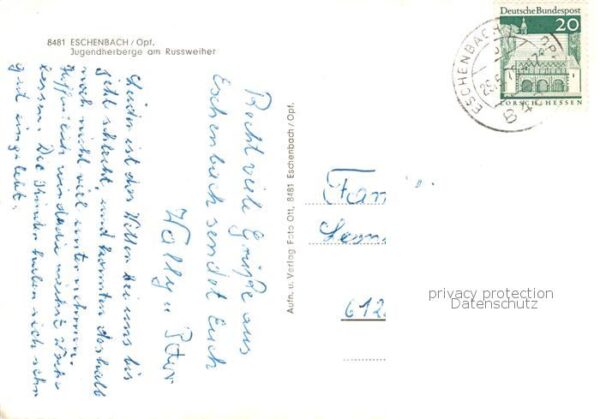 8481 ESCHENBACH / Opf.
Jugendherberge am Russweiher
Recht viele Grüße aus
Eschenbach sendet Euch
Wally u. Peter
Leider ist das Wetter bei uns bis
jetzt schlecht, und konnten deshalb
noch nicht viel unternehmen.
Hoffentlich wird die nächste Woche
besser. Die Kinder haben sich sehr
gut eingelebt.
Aufn. u. Verlag Foto Ott, 8481 Eschenbach/Opf.
Deutsche Bundespost
20
LORSCH/HESSEN
ESCHENBACH
Fam
612
privacy protection
Datenschutz